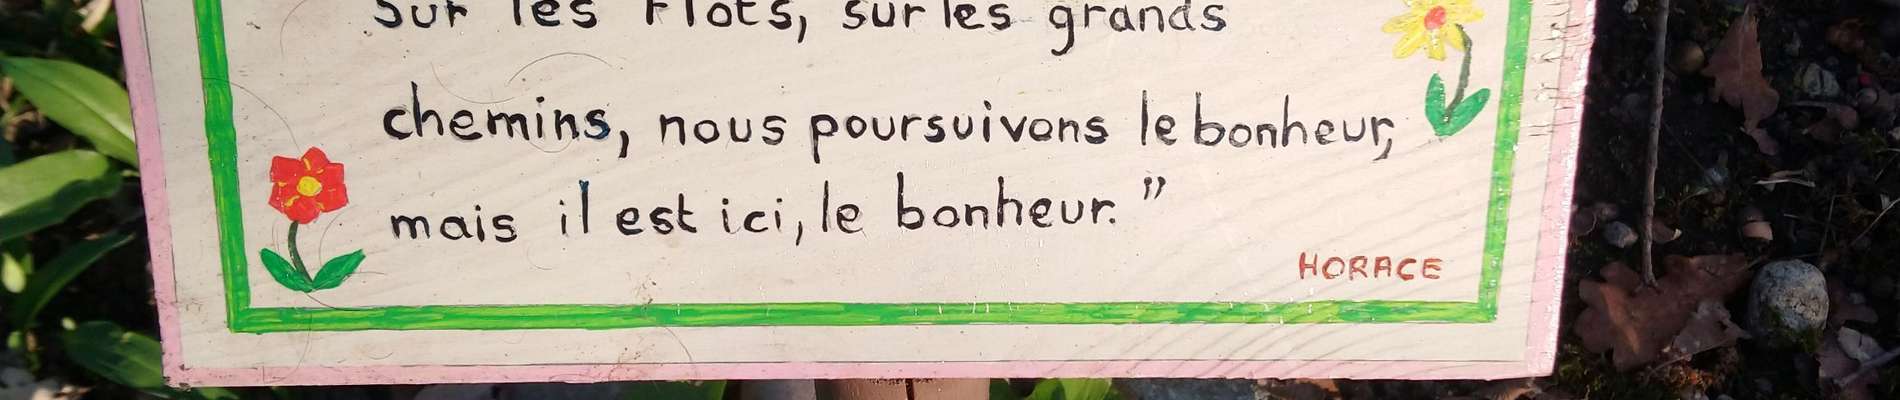 Sur les flots, sur les grands
chemins, nous poursuivons le bonheur,
mais il est ici, le bonheur."
HORACE